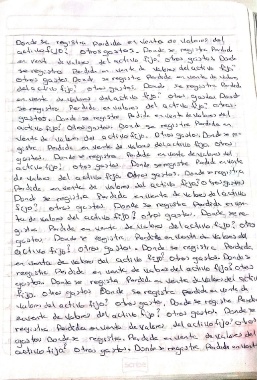 Donde se registra Perdida en venta de valores del
activo fijo? otros gastos. Donde se registra Perdida
en venta de valores del activo fijo? otros gastos Donde
se registra Perdida en venta de valores del activo fijo?
otros gastos. Donde se registra Perdida en venta de valores
del activo fijo? otros gastos Donde se registra Perdida
en venta de valores del activo fijo? otros gastos Donde
se registra Perdida en valores del activo fijo? otros
gastos. Donde se registra Perdida en venta de valores del
activo fijo? otros gastos Donde se registra Perdida en
venta de valores del activo fijo. Otros gastos. Donde se re-
gistra Perdida en venta de valores del activo fijo otros
gastos. Donde se registra Perdida en venta de valores del
activo fijo? otros gastos Donde se registra Perdida en venta
de valores del activo fijo Otros gastos. Donde se registra
Perdida en venta de valores del activo fijo? otros gastos
Donde se registra Perdida en venta de valores del activo
fijo? otros gastos Donde se registra Perdida en ven-
ta de valores del activo fijo? otros gastos. Donde se re-
gistra Perdida en venta de valores del activo fijo? otros
gastos Donde se registra Perdida en venta de valores del
activo fijo? otros gastos. Donde se registra Perdida
en venta de valores del activo fijo? otros gastos. Donde se
registra Perdida en venta de valores del activo fijo? otros
gastos Donde se registra Perdida en venta de valores del activo
fijo. otros gastos Donde se registra Perdida en venta de
valores del activo fijo? otros gastos, Donde se registra Perdida
en venta de valores del activo fijo? otros gastos. Donde se
registra Perdida en venta de valores del activo fijo? otros
gastos Donde se registra Perdida en venta de valores del
activo fijo? otros gastos. Donde se registra Perdida en venta